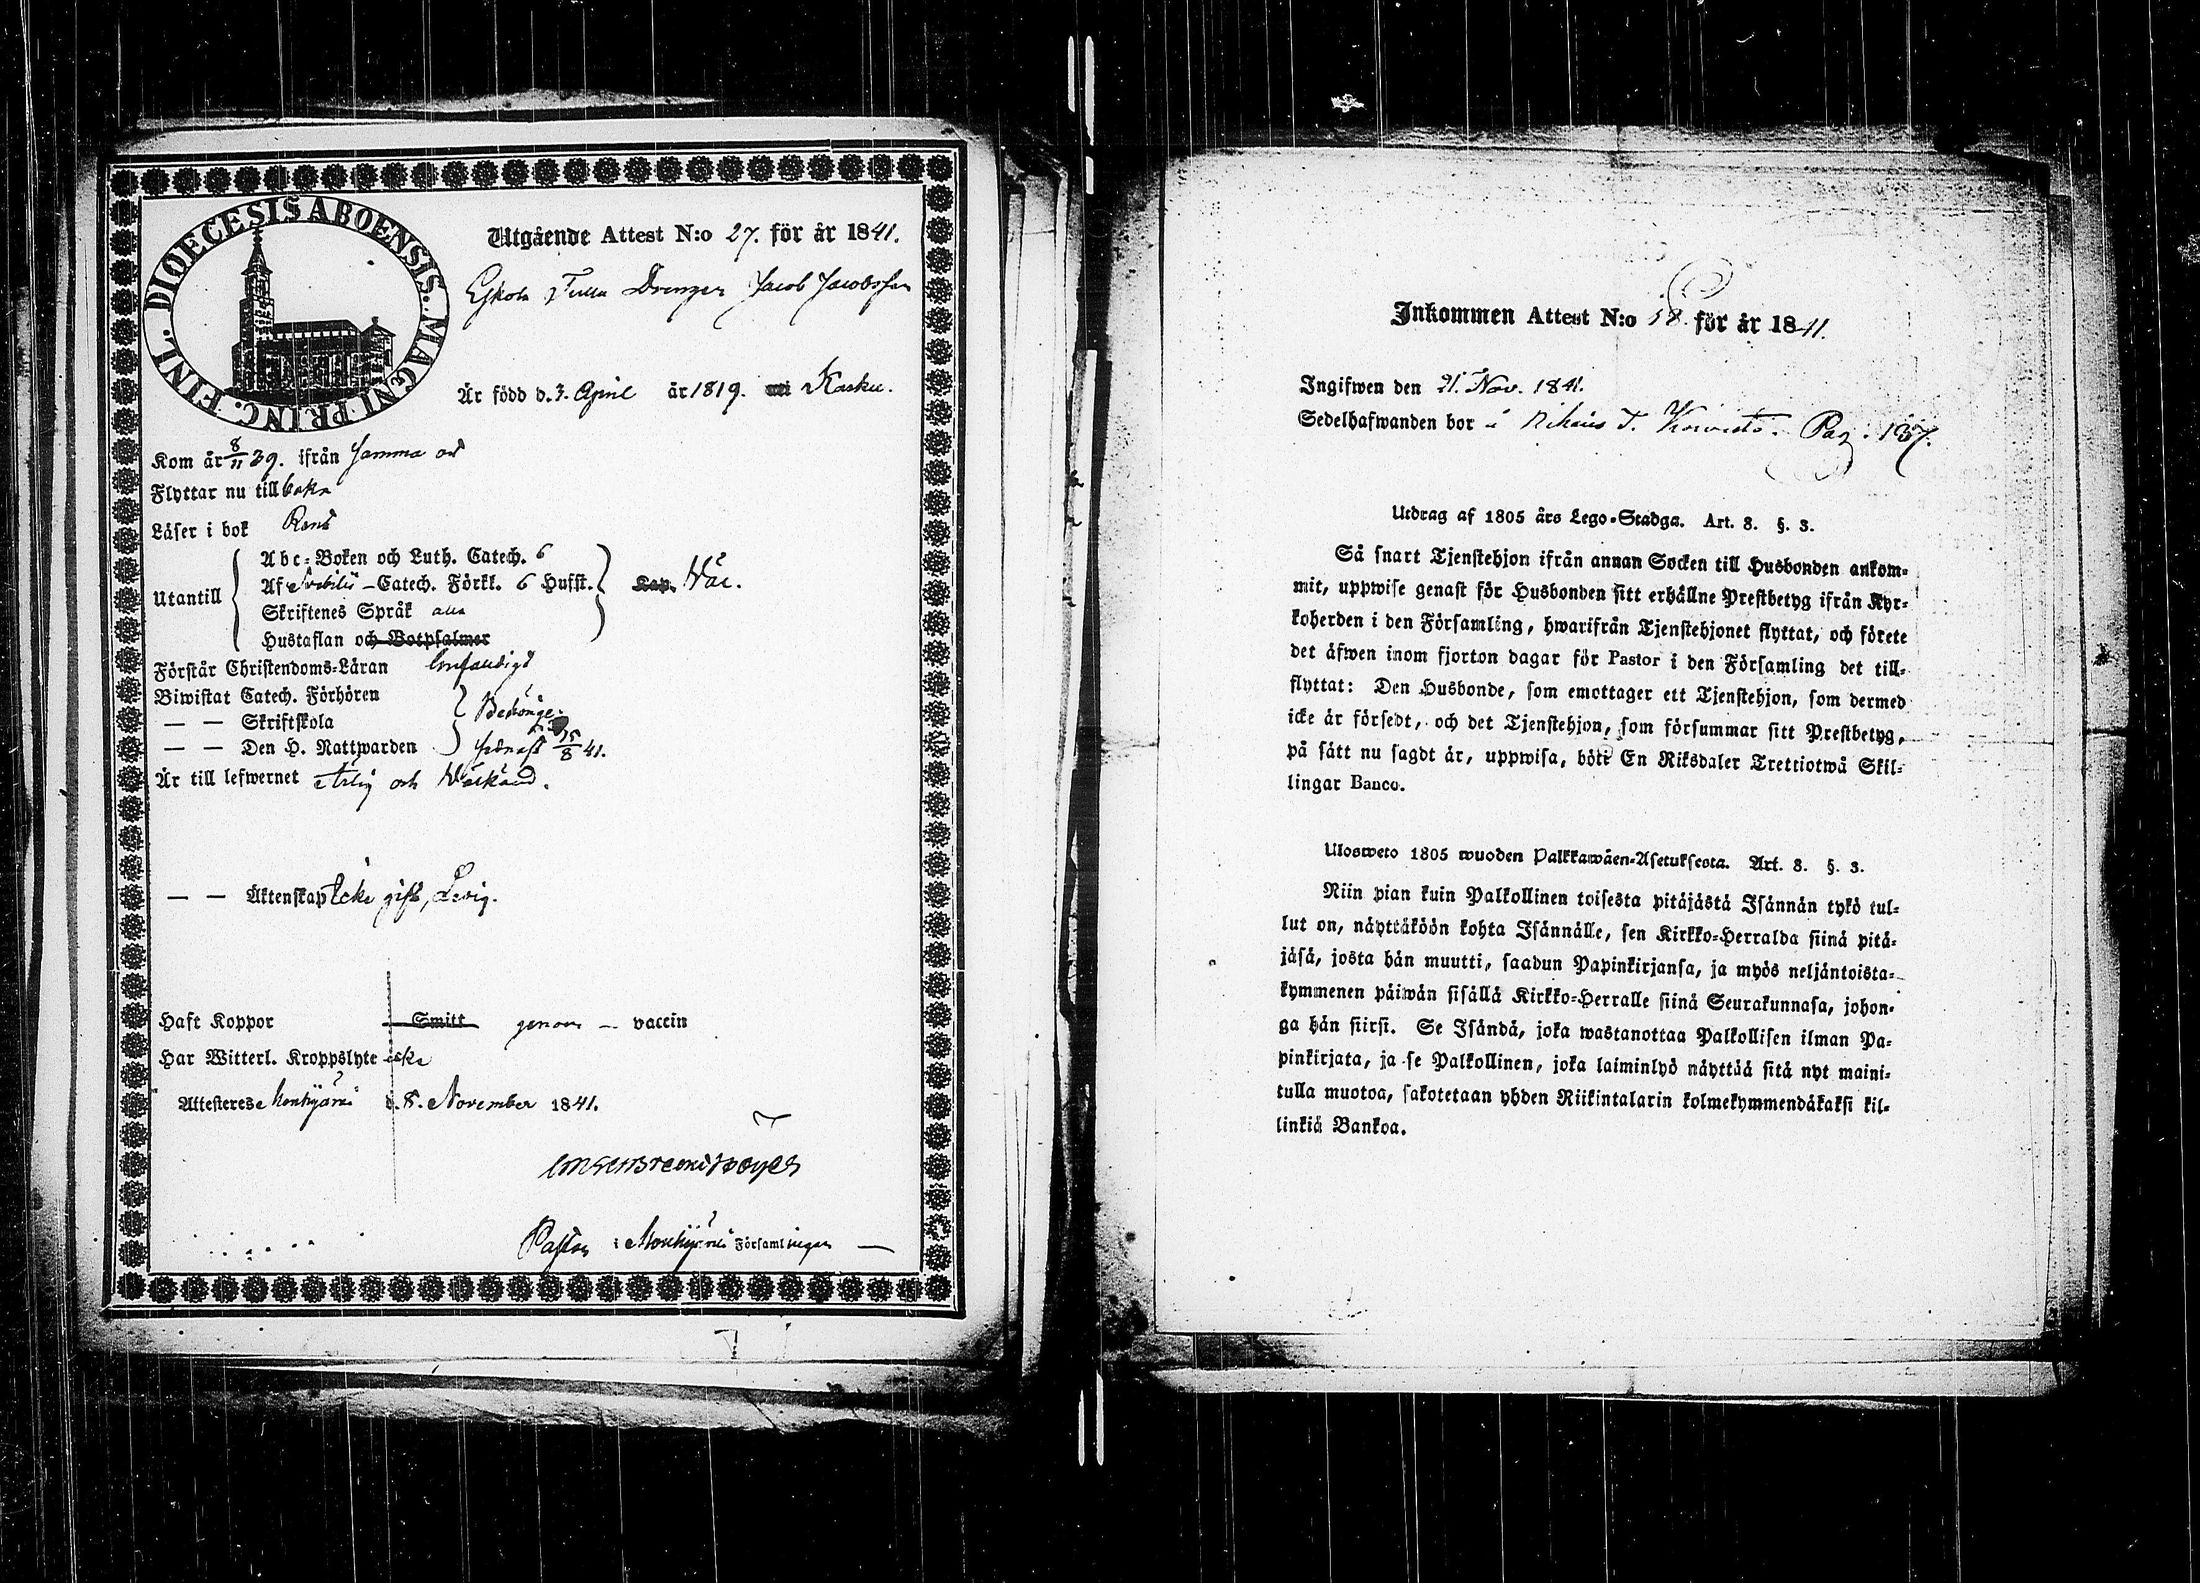 DIOECESIS ABOENSIS. MAGNI PRINC. FINL.
Utgående Attest N:o 27. för år 1841.
Drengen Jacob Jacobsson
Är född d. 3. April år 1819. Karku.
Kom år 8/11 39. ifrån samma ort
Flyttar nu tillbaka
Läser i bok Rent
Abc-Boken och Luth. Catech. 6
Utantill Af Svebilii-Catech. Förkl. 6 Hufst. Kap. Wäl.
Skriftenes Språk alla
Hustaflan och Botpsalmer
Förstår Christendoms-Läran
Biwistat Catech. Förhören
— — Skriftskola
— — Den H. Nattwarden senast 15/8 41.
Är till lefwernet Ärlig och
— — Äktenskap Icke gift, Ledig.
Haft Koppor Smitt genom — vaccin
Har Witterl. Kroppslyte icke
Attesteres Mouhijärvi d. 8. November 1841.
Pastor i Mouhijärvi Församlingen —
Inkommen Attest N:o 58. för år 1841.
Ingifwen den 21. Nov. 1841.
Sedelhafwanden bor Pag. 137.
Utdrag af 1805 års Lego-Stadga. Art. 8. §. 3.
Så snart Tjenstehjon ifrån annan Socken till Husbonden ankom-
mit, uppwise genast för Husbonden sitt erhållne Prestbetyg ifrån Kyr-
koherden i den Församling, hwarifrån Tjenstehjonet flyttat, och förete
det äfwen inom fjorton dagar för Pastor i den Församling det till-
flyttat: Den Husbonde, som emottager ett Tjenstehjon, som dermed
icke är försedt, och det Tjenstehjon, som försummar sitt Prestbetyg,
på sätt nu sagdt är, uppwisa, böte En Riksdaler Trettiotwå Skil-
lingar Banco.
Uloswetο 1805 wuoden Palkkawäen-Asetuksesta. Art. 8. §. 3.
Niin pian kuin Palkollinen toisesta pitäjästä Isännän tykö tul-
lut on, näyttäköön kohta Isännälle, sen Kirkko-Herralda siinä pitä-
jäsä, josta hän muutti, saadun Papinkirjansa, ja myös neljäntoista-
kymmenen päiwän sisällä Kirkko-Herralle siinä Seurakunnasa, johon-
ga hän siirsi. Se Isändä, joka wastanottaa Palkollisen ilman Pa-
pinkirjata, ja se Palkollinen, joka laiminlyö näyttää sitä nyt maini-
tulla muotoa, sakotetaan yhden Riikintalarin kolmekymmendäkaksi kil-
linkiä Bankoa.